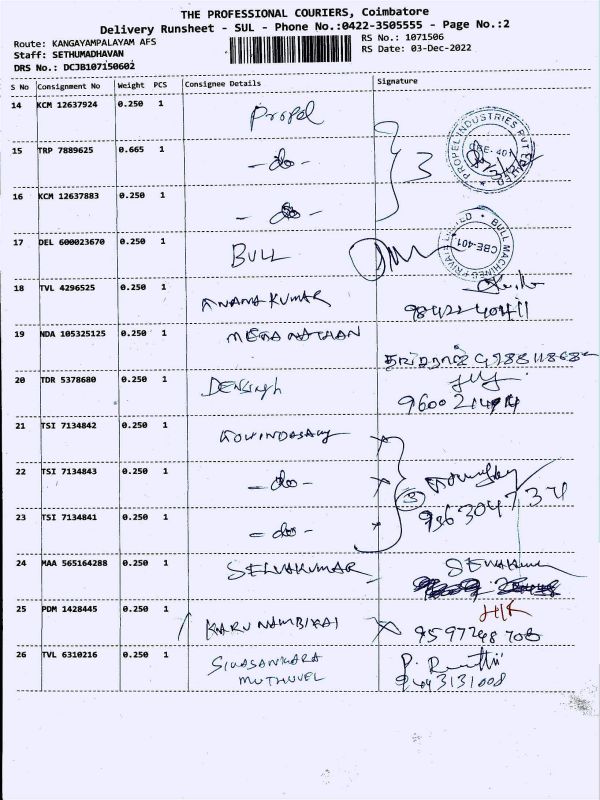 THE PROFESSIONAL COURIERS, Coimbatore
Delivery Runsheet - SUL - Phone No.:0422-3505555 - Page No.:2
Route: KANGAYAMPALAYAM AFS
RS No.: 1071506
Staff: SETHUMADHAVAN
RS Date: 03-Dec-2022
DRS No.: DCJB107150602
S No Consignment No Weight PCS Consignee Details Signature
14 KCM 12637924 0.250 1 Propel
15 TRP 7889625 0.665 1 -do- 3
PROPEL INDUSTRIES PVT LTD
CBE-401
16 KCM 12637883 0.250 1 -do-
17 DEL 600023670 0.250 1 BULL
BULL MACHINES PRIVATE LIMITED
CBE-401
18 TVL 4296525 0.250 1 ANANA KUMAR
19 NDA 105325125 0.250 1 MEGANATHAN
20 TDR 5378680 0.250 1
21 TSI 7134842 0.250 1
22 TSI 7134843 0.250 1 -do- 3
23 TSI 7134841 0.250 1 -do-
24 MAA 565164288 0.250 1 SELVAKUMAR
25 PDM 1428445 0.250 1 KARUNAMBIKAI
9597248708
26 TVL 6310216 0.250 1 SIVASANKARA
MUTHUVEL